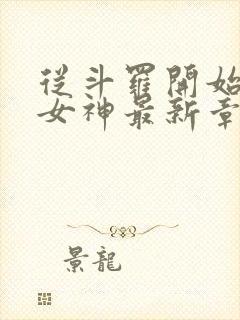 從斗羅開始
女神最新章
景龍